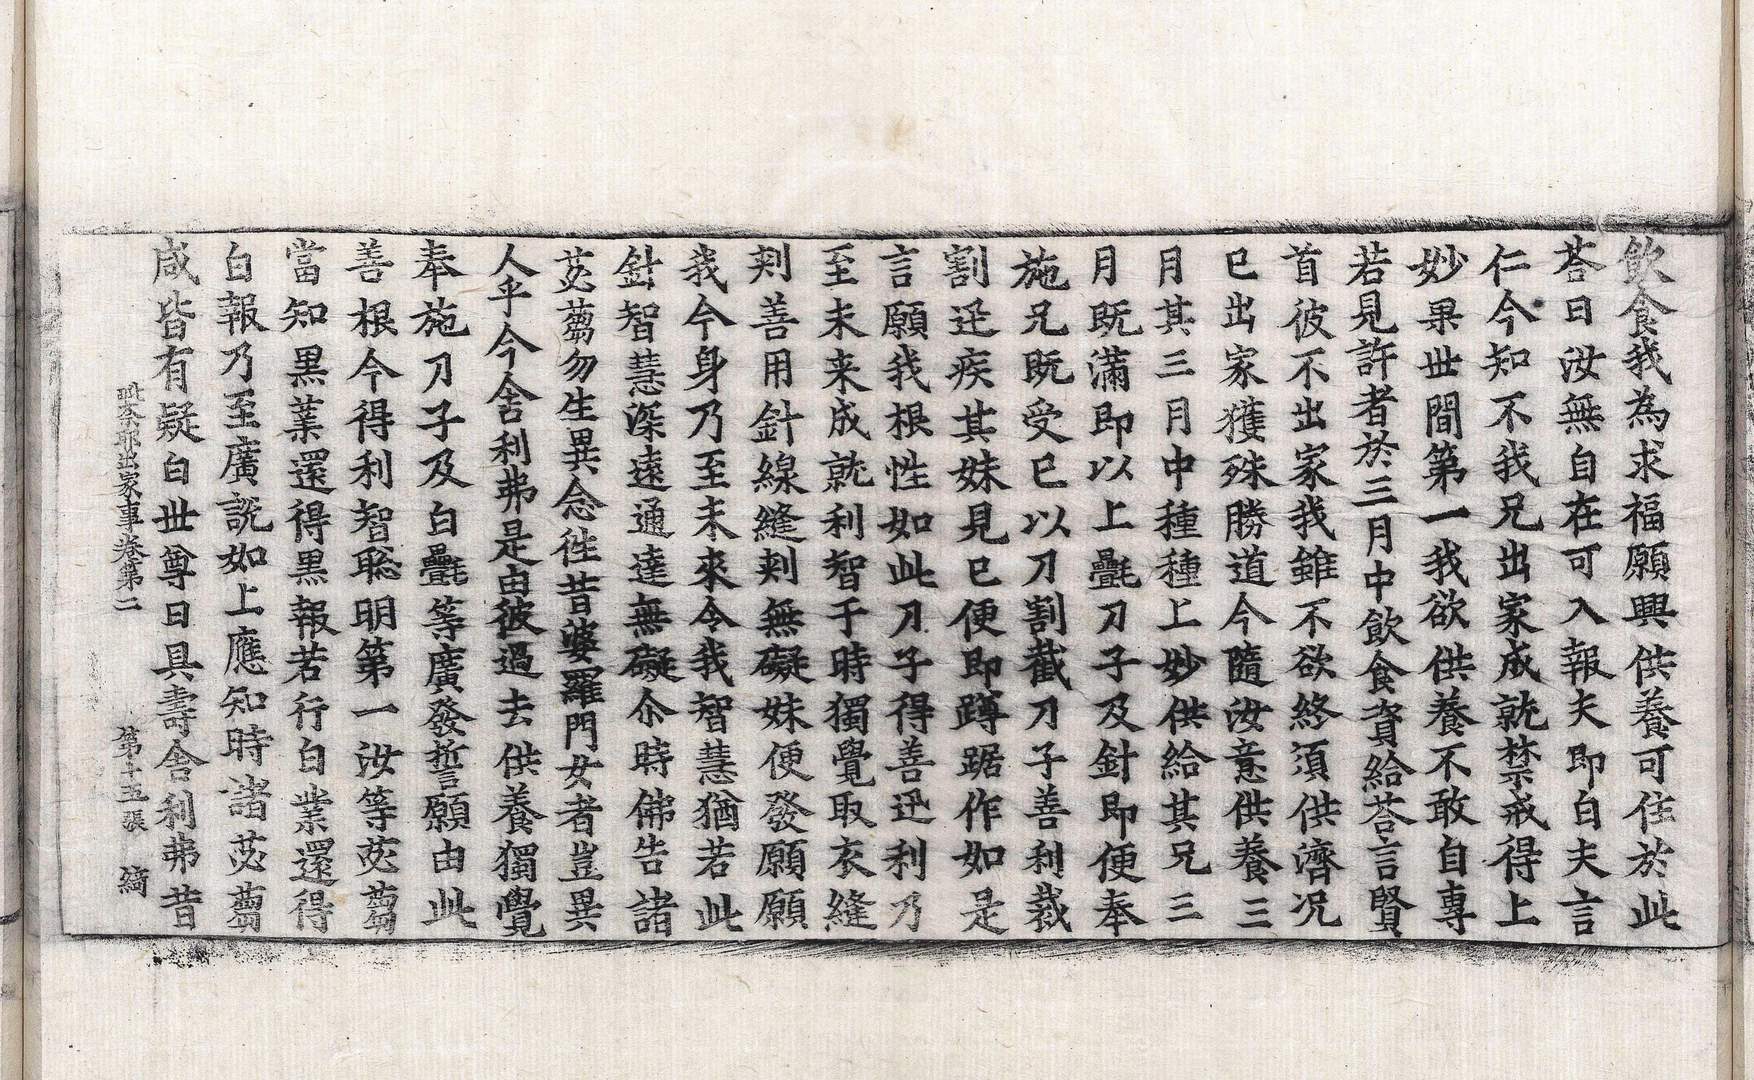 飲食我為求福願興供養可住於此
荅曰汝無自在可入報夫即白夫言
仁今知不我兄出家成就禁戒得上
妙果世間第一我欲供養不敢自專
若見許者於三月中飲食資給荅言賢
首彼不出家我雖不欲終須供濟况
已出家獲殊勝道今隨汝意供養三
月其三月中種種上妙供給其兄三
月既滿即以上㲲刀子及針即便奉
施兄既受已以刀割截刀子善利裁
割迅疾其妹見已便即蹲踞作如是
言願我根性如此刀子得善迅利乃
至未来成就利智于時獨覺取衣縫
刾善用針線縫刾無礙妹便發願願
我今身乃至未來令我智慧猶若此
針智慧深遠通達無礙尒時佛告諸
苾蒭勿生異念徃昔婆羅門女者豈異
人乎今舍利弗是由彼過去供養獨覺
奉施刀子及白㲲等廣發誓願由此
善根今得利智聦明第一汝等苾蒭
當知黒業還得黒報若行白業還得
白報乃至廣說如上應知時諸苾蒭
咸皆有疑白世尊曰具壽舍利弗昔
毗奈耶出家事卷第二 第十五張 綺